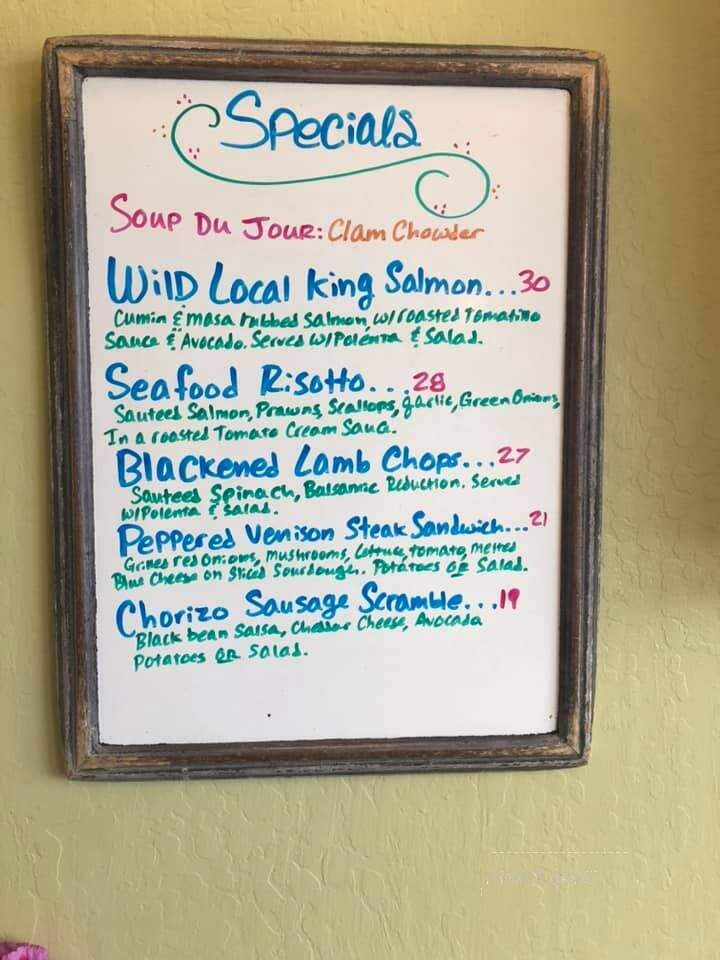 Specials
Soup Du Jour: Clam Chowder
Wild Local King Salmon...30
Cumin & masa rubbed Salmon, w/roasted Tomatillo
Sauce & Avocado. Served w/Polenta & Salad.
Seafood Risotto...28
Sauteed Salmon, Prawns, Scallops, garlic, Green Onions,
In a roasted Tomato Cream Sauce.
Blackened Lamb Chops...27
Sauteed Spinach, Balsamic Reduction. Served
w/Polenta & Salad.
Peppered Venison Steak Sandwich...21
Grilled red Onions, Mushrooms, Lettuce, tomato, melted
Blue Cheese on Sliced Sourdough. Potatoes or Salad.
Chorizo Sausage Scramble...19
Black bean Salsa, Cheddar Cheese, Avocado
Potatoes or Salad.